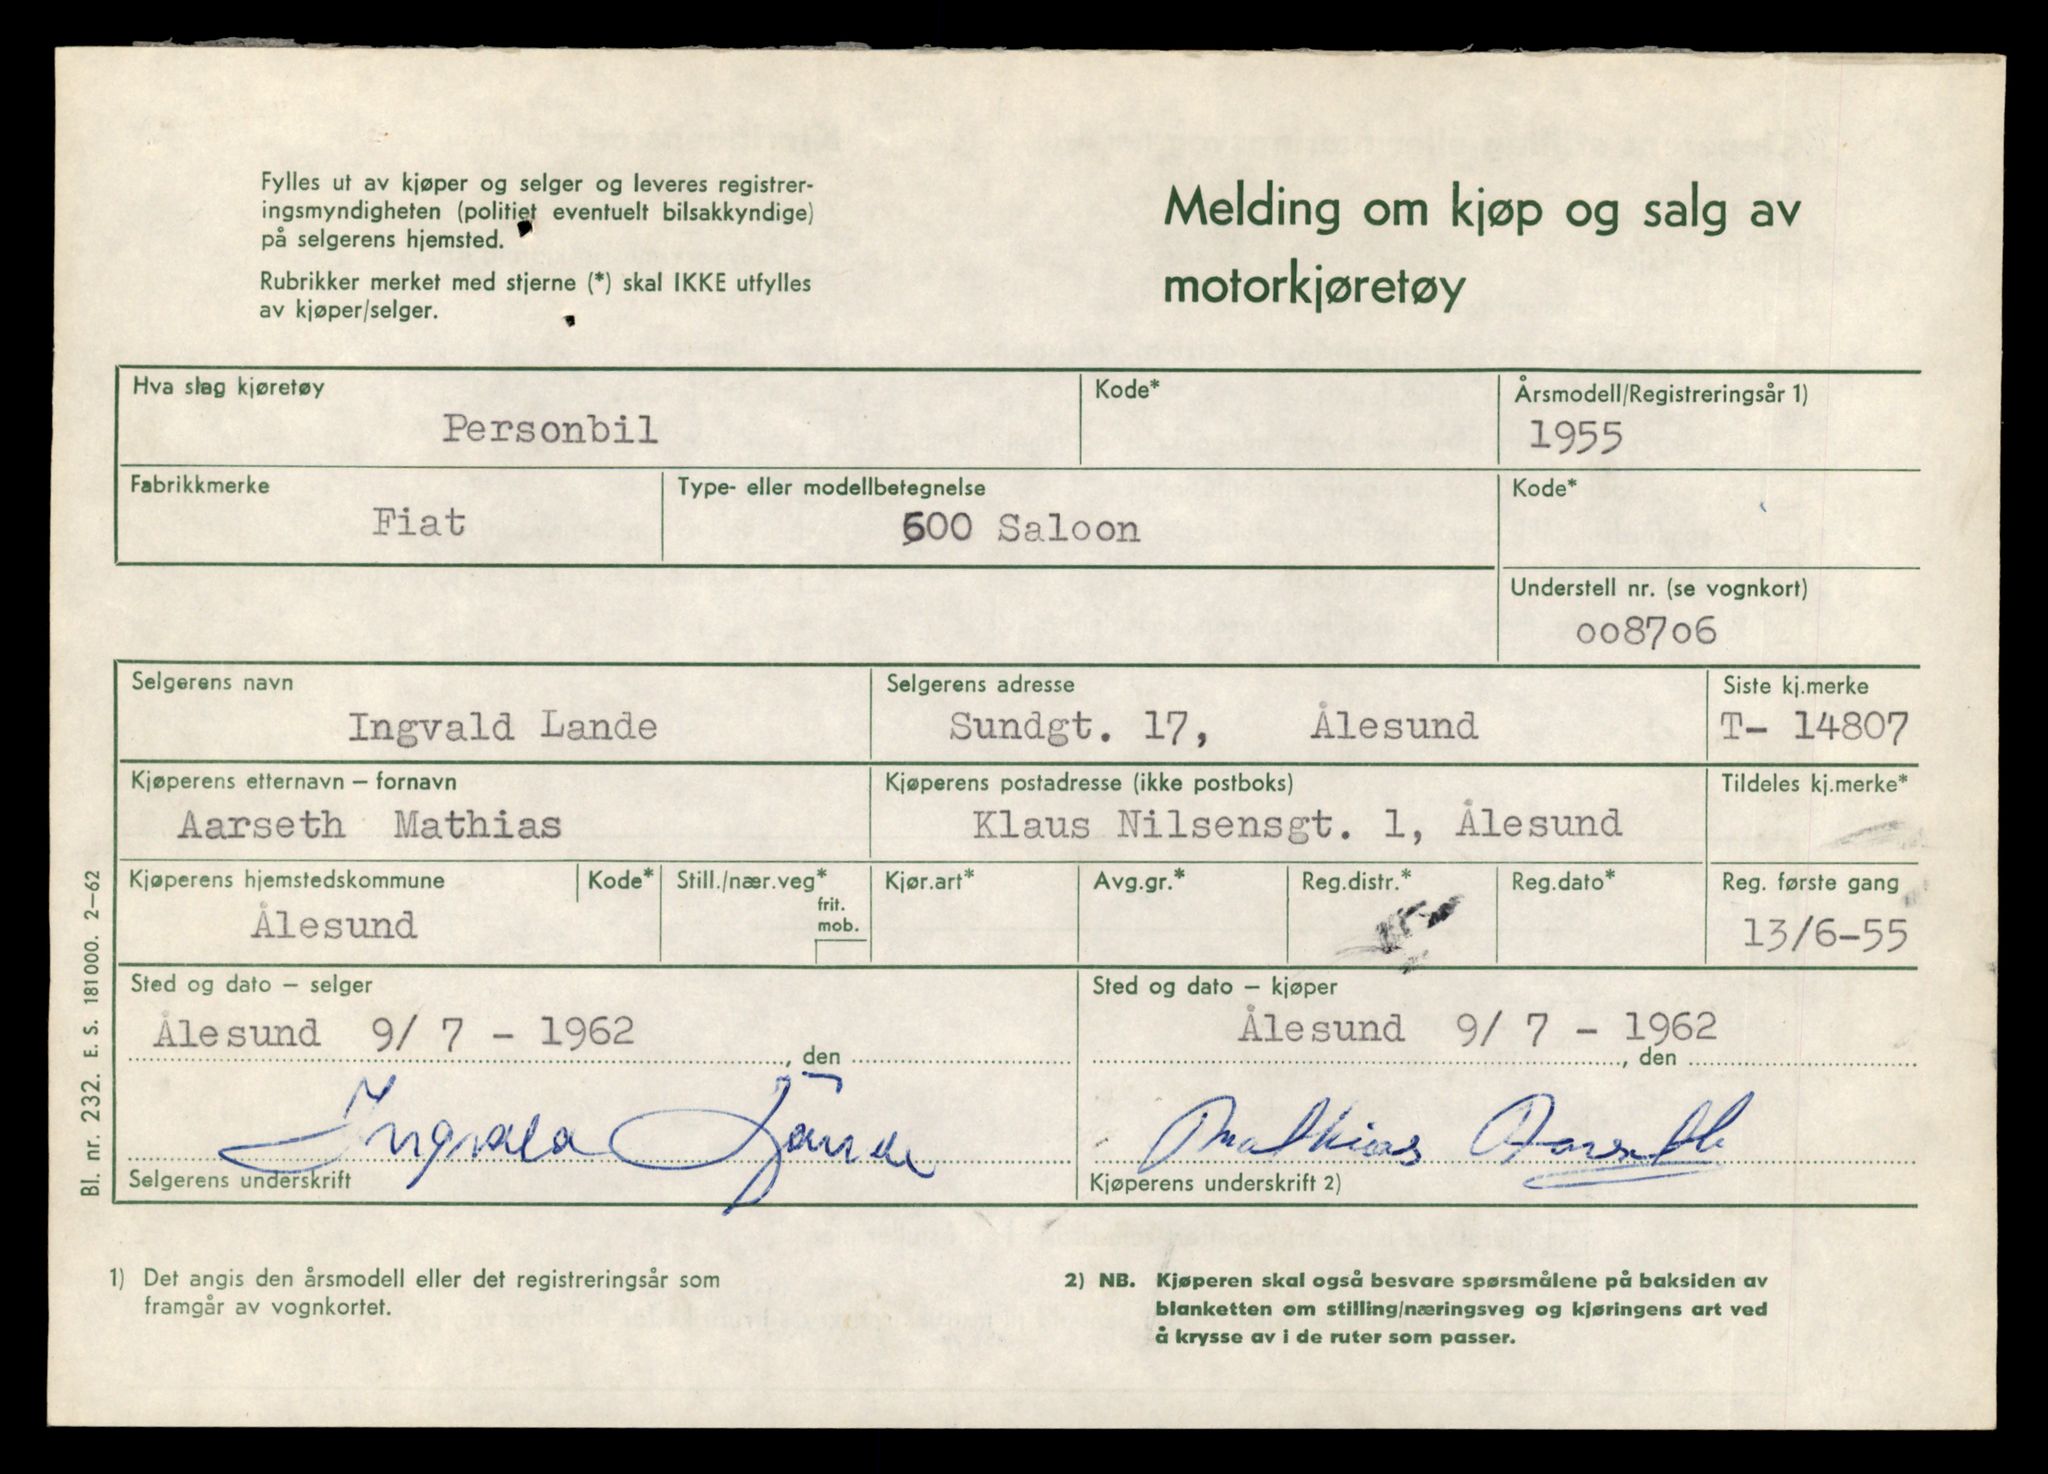 Fylles ut av kjøper og selger og leveres registrer-
ingsmyndigheten (politiet eventuelt bilsakkyndige)
på selgerens hjemsted.
Rubrikker merket med stjerne (*) skal IKKE utfylles
av kjøper/selger.
Melding om kjøp og salg av
motorkjøretøy
Hva slag kjøretøy
Personbil
Kode*
Årsmodell/Registreringsår 1)
1955
Fabrikkmerke
Fiat
Type- eller modellbetegnelse
600 Saloon
Kode*
Understell nr. (se vognkort)
008706
Selgerens navn
Ingvald Lande
Selgerens adresse
Sundgt. 17, Ålesund
Siste kj.merke
T- 14807
Kjøperens etternavn – fornavn
Aarseth Mathias
Kjøperens postadresse (ikke postboks)
Klaus Nilsensgt. 1, Ålesund
Tildeles kj.merke*
Kjøperens hjemstedskommune
Ålesund
Kode*
Still./nær.veg*
frit.
mob.
Kjør.art*
Avg.gr.*
Reg.distr.*
Reg.dato*
Reg. første gang
13/6-55
Sted og dato – selger
Ålesund 9/ 7 - 1962
, den
Ingvald Lande
Selgerens underskrift
Sted og dato – kjøper
Ålesund 9/ 7 - 1962
, den
Mathias Aarseth
Kjøperens underskrift 2)
Bl. nr. 232. E. S. 181000. 2–62
1) Det angis den årsmodell eller det registreringsår som
framgår av vognkortet.
2) NB. Kjøperen skal også besvare spørsmålene på baksiden av
blanketten om stilling/næringsveg og kjøringens art ved
å krysse av i de ruter som passer.